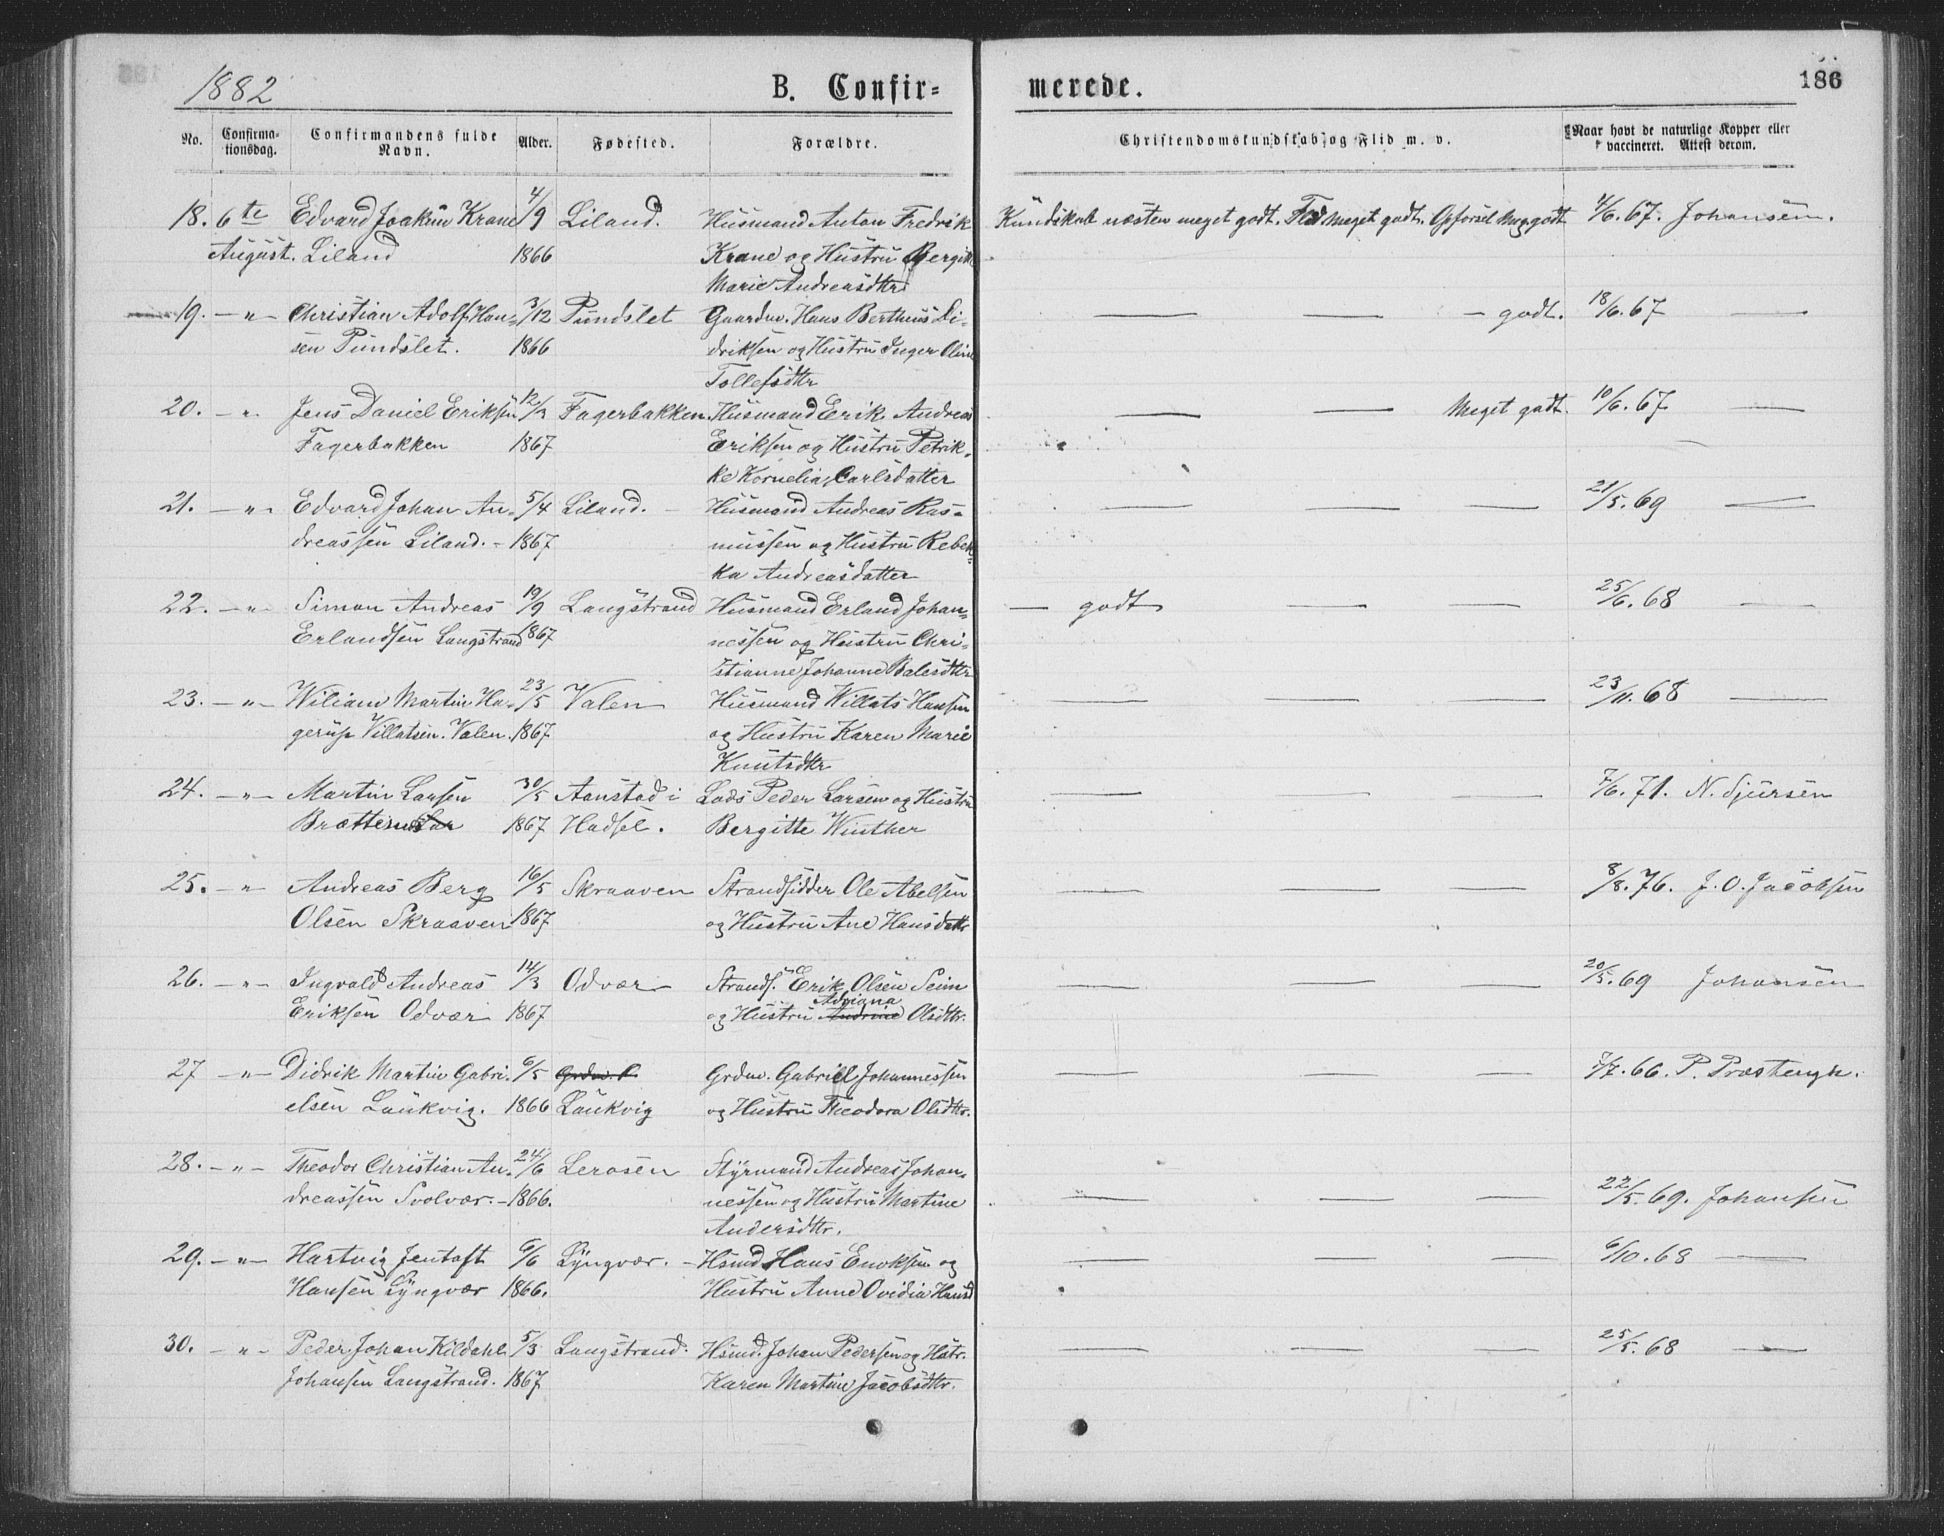 1882 B. Confir= merede. 186
No. Confirma= tionsdag. Confirmandens fulde Navn. Alder. Fødested. Forældre. Christendomskundskab og Flid m. v. Naar havt de naturlige Kopper eller vaccineret. Attest derom.
18. 6te Edvard Joakim Krane 4/9 Liland. Husmand Anton Fredrik Kundskab næsten meget godt. Flid meget godt. Opførsel meg. godt 4/6. 67. Johansen.
August. Liland 1866 Krane og Hustru Bergitte
Marie Andreasdttr
19. — " — Christian Adolf Han= 3/12 Pundslet Gaardm. Hans Bertheus Di= — — — godt. 18/6. 67 —
sen Pundslet. 1866 driksen og Hustru Inger Oline
Tollefsdttr
20. — " — Jens Daniel Eriksen 12/3 Fagerbakken. Husmand Erik Andreas — — Meget godt 10/6. 67 —
Fagerbakken 1867 Eriksen og Hustru Petrik=
ke Kornelia Carlsdatter
21. — " — Edvard Johan An= 5/4 Liland. Husmand Andreas Ras= — — — 21/5. 69 —
dreassen Liland. - 1867 mussen og Hustru Rebek=
ka Andreasdatter
22. — " — Simon Andreas 19/9 Langstrand Husmand Erland Johan= — godt — — 25/6. 68 —
Erlandsen Langstrand 1867 nessen og Hustru Chri=
stianne Johanne Balesdttr
23. — " — Wiliam Martin Ha= 23/5 Valen Husmand Willats Hansen — — — 23/11. 68 —
gerup Villatsen. Valen. 1867 og Hustru Karen Marie
Knutsdttr
24. — " — Martin Larsen 30/5 Aanstad i Lods Peder Larsen og Hustru — — — 7/6. 71. N. Sjursen
Brotternes 1867 Hadsel. Bergitte Winther
25. — " — Andreas Berg 16/5 Skraaven Strandsidder Ole Abelsen — — — 8/8. 76. J. O. Jacobsen
Olsen Skraaven 1867 og Hustru Ane Hansdattr
26. — " — Ingvald Andreas 14/3 Odvær Strands. Erik Olsen Seim — — — 20/5. 69 Johansen
Eriksen Odvær 1867 og Hustru Andrine Adriana Olsdttr.
27 — " — Didrik Martin Gabri= 6/5 Grdm. Grdm. Gabriel Johannessen — — — 7/7. 66. P. Præstengh.
elsen Laukvig. 1866 Laukvig og Hustru Theodora Olsdttr.
28. — " — Theodor Christian An= 24/6 Lerosen Styrmand Andreas Johan=
dreassen Svolvær. - 1866. nessen og Hustru Martine — — — 22/5. 69. Johansen
Andersdttr.
29. — " — Hartvig Jentoft 6/6 Lyngvær. - Hsmd Hans Enoksen og — — — 6/10. 68 —
Hansen Lyngvær 1866. Hustru Anne Ovidia Hansd
30. — " — Peder Johan Kildahl 5/3 Langstrand. Hsmd. Johan Pedersen og Hstr. — — — 25/5. 68 —
Johansen Langstrand. 1867 Karen Martine Jacobsdttr.